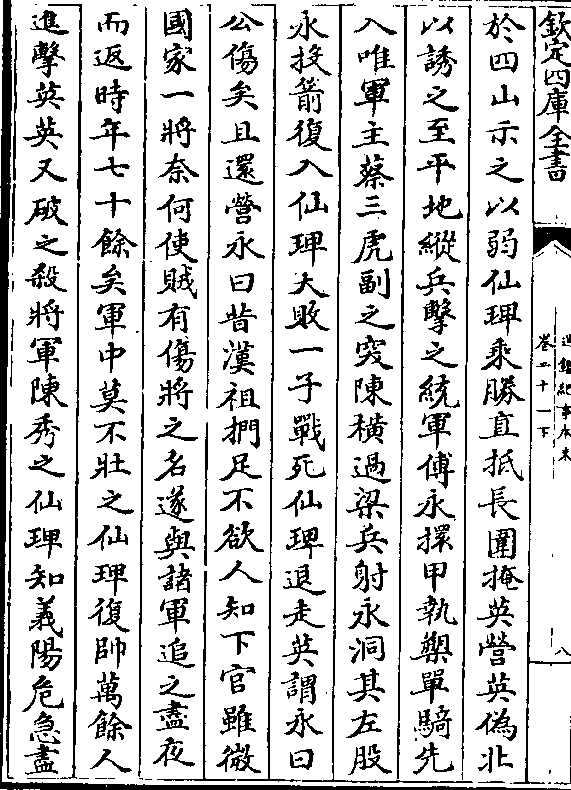 欽定四庫全書
通鑑紀事本末
卷二十一下
八
於四山示之以弱仙琕乘勝直抵長圍掩英營英偽北
以誘之至平地縱兵擊之統軍傅永擐甲執槊單騎先
入唯軍主蔡三虎副之突陳橫過梁兵射永洞其左股
永投箭復入仙琕大敗一子戰死仙琕退走英謂永曰
公傷矣且還營永曰昔漢祖捫足不欲人知下官雖微
國家一將奈何使賊有傷將之名遂與諸軍追之盡夜
而返時年七十餘矣軍中莫不壯之仙琕復帥萬餘人
進擊英英又破之殺將軍陳秀之仙琕知義陽危急盡